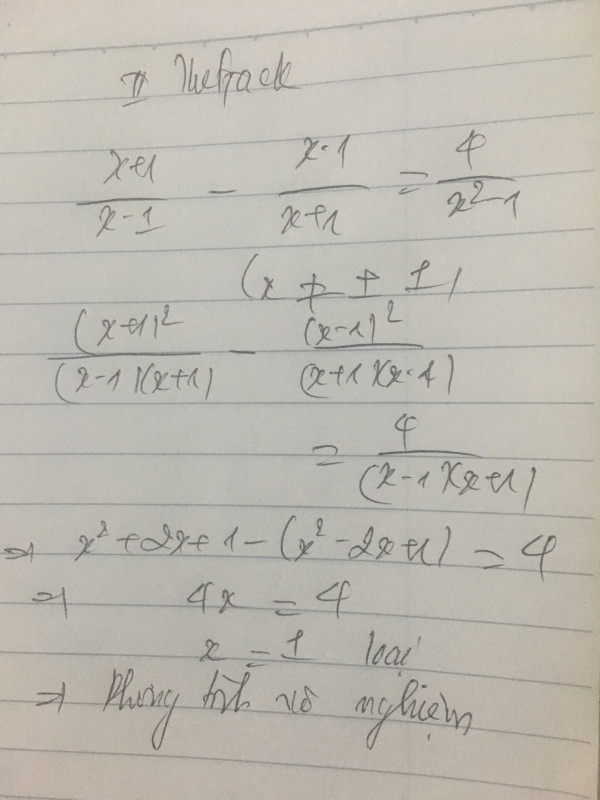 II Thefrack
x+1 / x-1 - x-1 / x+1 = 4 / x²-1
(x ≠ ± 1)
(x+1)² / (x-1)(x+1) - (x-1)² / (x+1)(x-1)
= 4 / (x-1)(x+1)
⇒ x²+2x+1-(x²-2x+1) = 4
⇒ 4x = 4
x = 1 loại
⇒ Phương trình vô nghiệm